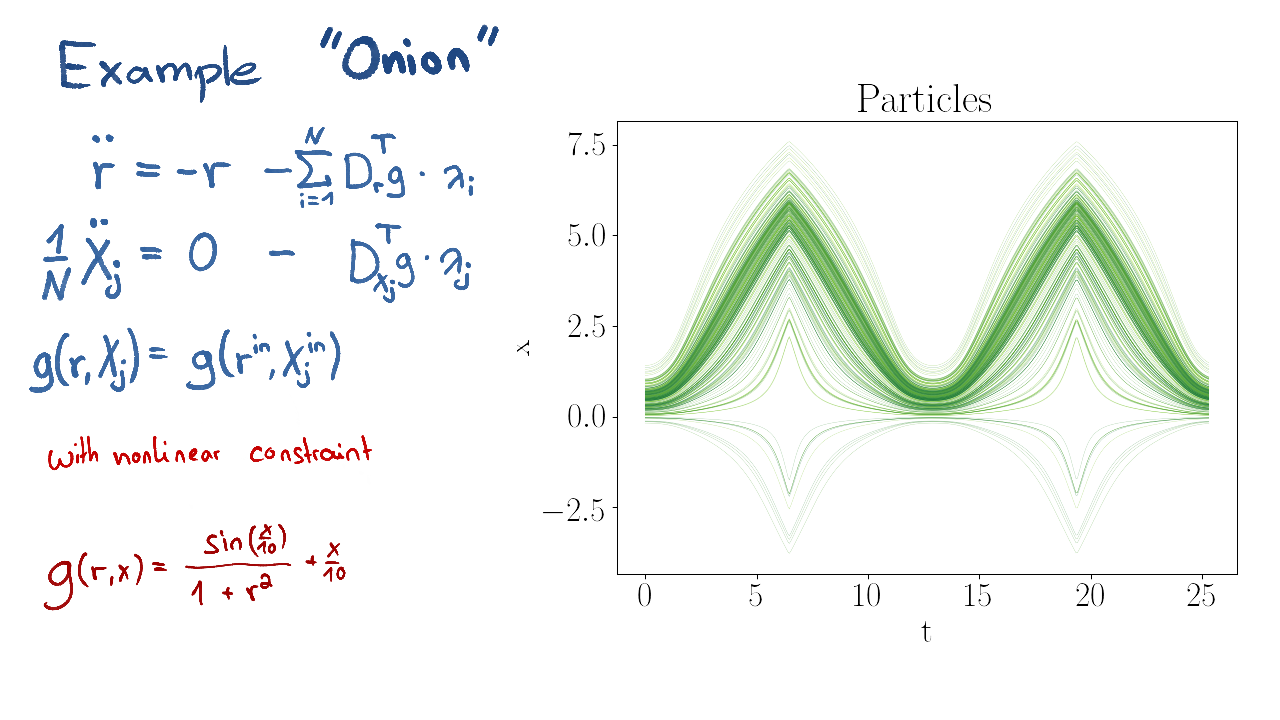 Example "Onion"
r̈ = -r - ∑_{i=1}^{N} D_r^T g · λ_i
1/N Ẍ_j = 0 - D_{X_j}^T g · λ_j
g(r, X_j) = g(r^{in}, X_j^{in})
with nonlinear constraint
g(r,x) = sin(x/10) / (1 + r^2) + x/10
Particles
7.5
5.0
2.5
0.0
−2.5
x
0 5 10 15 20 25
t